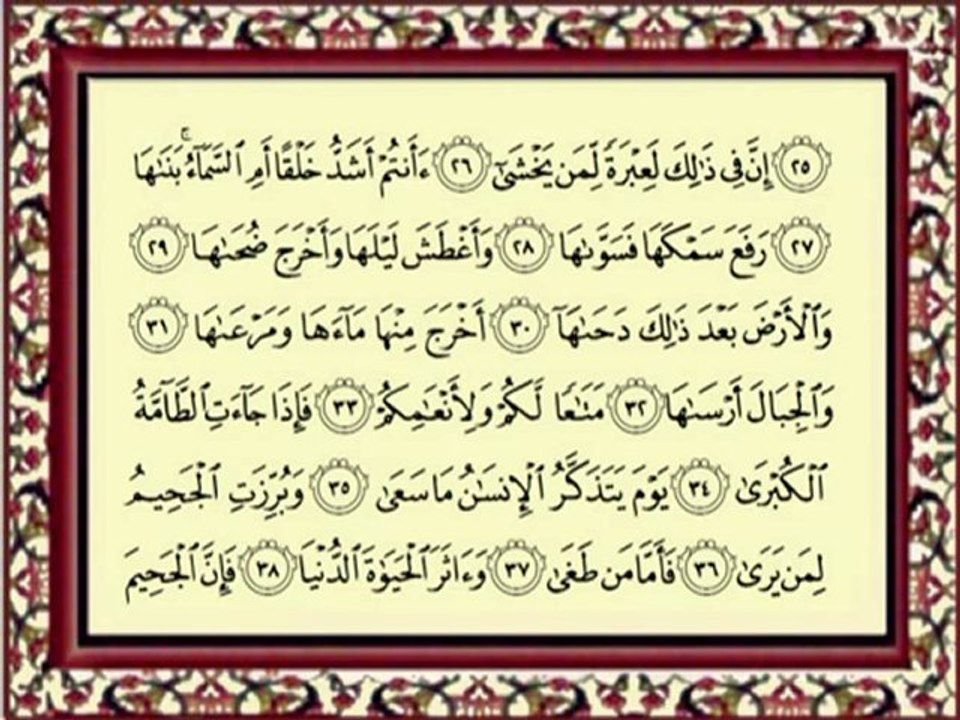 ٢٥ إِنَّ فِى ذَٰلِكَ لَعِبْرَةً لِّمَن يَخْشَىٰٓ ٢٦ ءَأَنتُمْ أَشَدُّ خَلْقًا أَمِ ٱلسَّمَآءُ ۚ بَنَىٰهَا
٢٧ رَفَعَ سَمْكَهَا فَسَوَّىٰهَا ٢٨ وَأَغْطَشَ لَيْلَهَا وَأَخْرَجَ ضُحَىٰهَا ٢٩
وَٱلْأَرْضَ بَعْدَ ذَٰلِكَ دَحَىٰهَآ ٣٠ أَخْرَجَ مِنْهَا مَآءَهَا وَمَرْعَىٰهَا ٣١
وَٱلْجِبَالَ أَرْسَىٰهَا ٣٢ مَتَٰعًا لَّكُمْ وَلِأَنْعَٰمِكُمْ ٣٣ فَإِذَا جَآءَتِ ٱلطَّآمَّةُ
ٱلْكُبْرَىٰ ٣٤ يَوْمَ يَتَذَكَّرُ ٱلْإِنسَٰنُ مَا سَعَىٰ ٣٥ وَبُرِّزَتِ ٱلْجَحِيمُ
لِمَن يَرَىٰ ٣٦ فَأَمَّا مَن طَغَىٰ ٣٧ وَءَاثَرَ ٱلْحَيَوٰةَ ٱلدُّنْيَا ٣٨ فَإِنَّ ٱلْجَحِيمَ